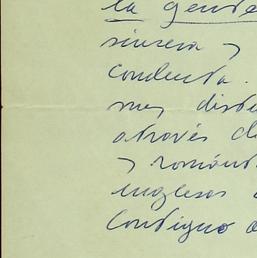 la gente
sincera y
conducta.
muy disti
a través de
y románt
ingleses
Contigno a